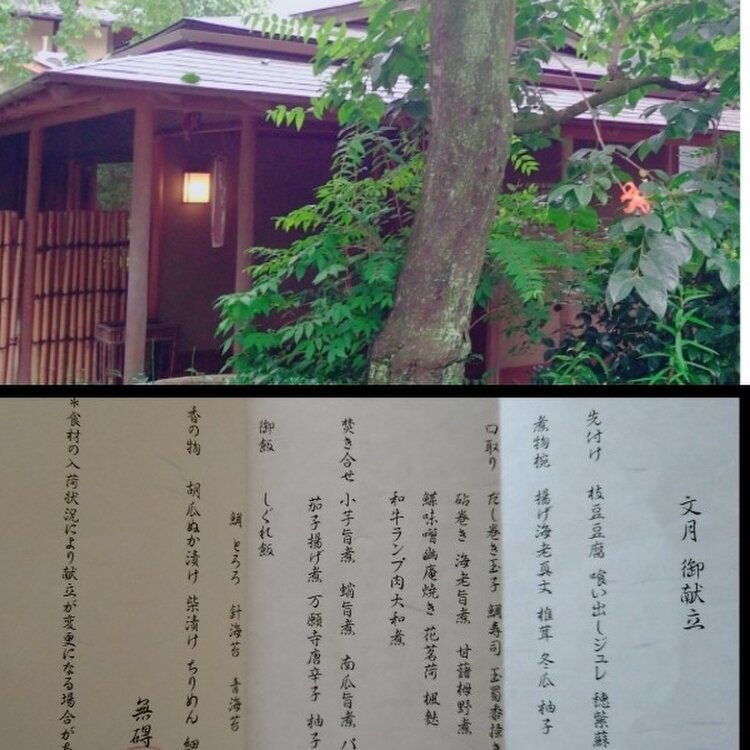 文月 御献立
先付け 枝豆豆腐 喰い出しジュレ 穂紫蘇
煮物椀 揚げ海老真丈 椎茸 冬瓜 柚子
口取り だし巻き玉子 鯛寿司 玉蜀黍掻き
砧巻き 海老旨煮 甘藷栂野煮
鰈味噌幽庵焼き 花茗荷 楓麩
和牛ランプ肉大和煮
焚き合せ 小芋旨煮 蛸旨煮 南瓜旨煮
茄子揚げ煮 万願寺唐辛子 柚子
御飯 しぐれ飯
鯛 とろろ 針海苔 青海苔
香の物 胡瓜ぬか漬け 柴漬け ちりめん 細
無碍
*食材の入荷状況により献立が変更になる場合が